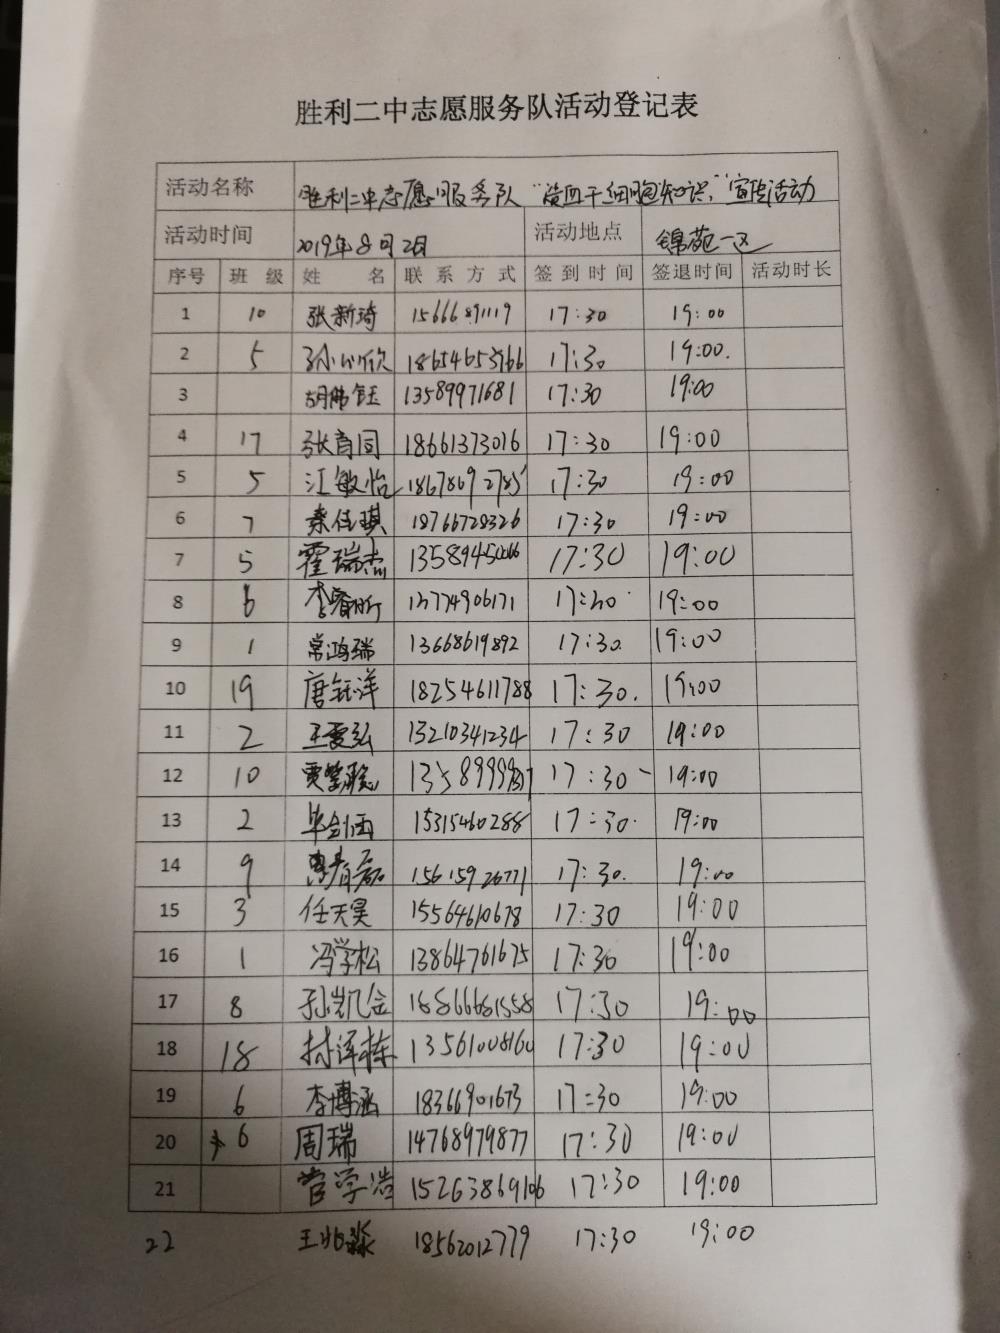 胜利二中志愿服务队活动登记表
活动名称 胜利二中志愿服务队“造血干细胞知识”宣传活动
活动时间 2019年8月2日 活动地点 锦苑一区
序号 班级 姓名 联系方式 签到时间 签退时间 活动时长
1 10 张新琦 15666891119 17:30 19:00
2 5 孙心欣 18654653966 17:30 19:00.
3 胡 钰 13589971681 17:30 19:00
4 17 张育同 18661373016 17:30 19:00
5 5 江敏怡 18678692785 17:30 19:00
6 7 秦佳琪 18766728326 17:30 19:00
7 5 霍瑞杰 17:30 19:00
8 6 李睿昕 13774906171 17:30 19:00
9 1 常鸿瑞 13668619892 17:30. 19:00
10 19 唐钰洋 18254611788 17:30. 19:00
11 2 王雯弘 13210341234 17:30 19:00
12 10 贾 聪 17:30 19:00
13 2 毕剑函 15315460288 17:30. 19:00
14 9 15615926771 17:30. 19:00
15 3 任天昊 15564610678 17:30 19:00
16 1 冯学松 13864761675 17:30 19:00
17 8 孙凯金 17:30 19:00
18 18 林泽栋 13561008160 17:30 19:00
19 6 李博涵 18366901673 17:30 19:00
20 6 周瑞 14768979877 17:30 19:00
21 管学浩 15263869106 17:30 19:00
22 王兆淼 18562012779 17:30 19:00